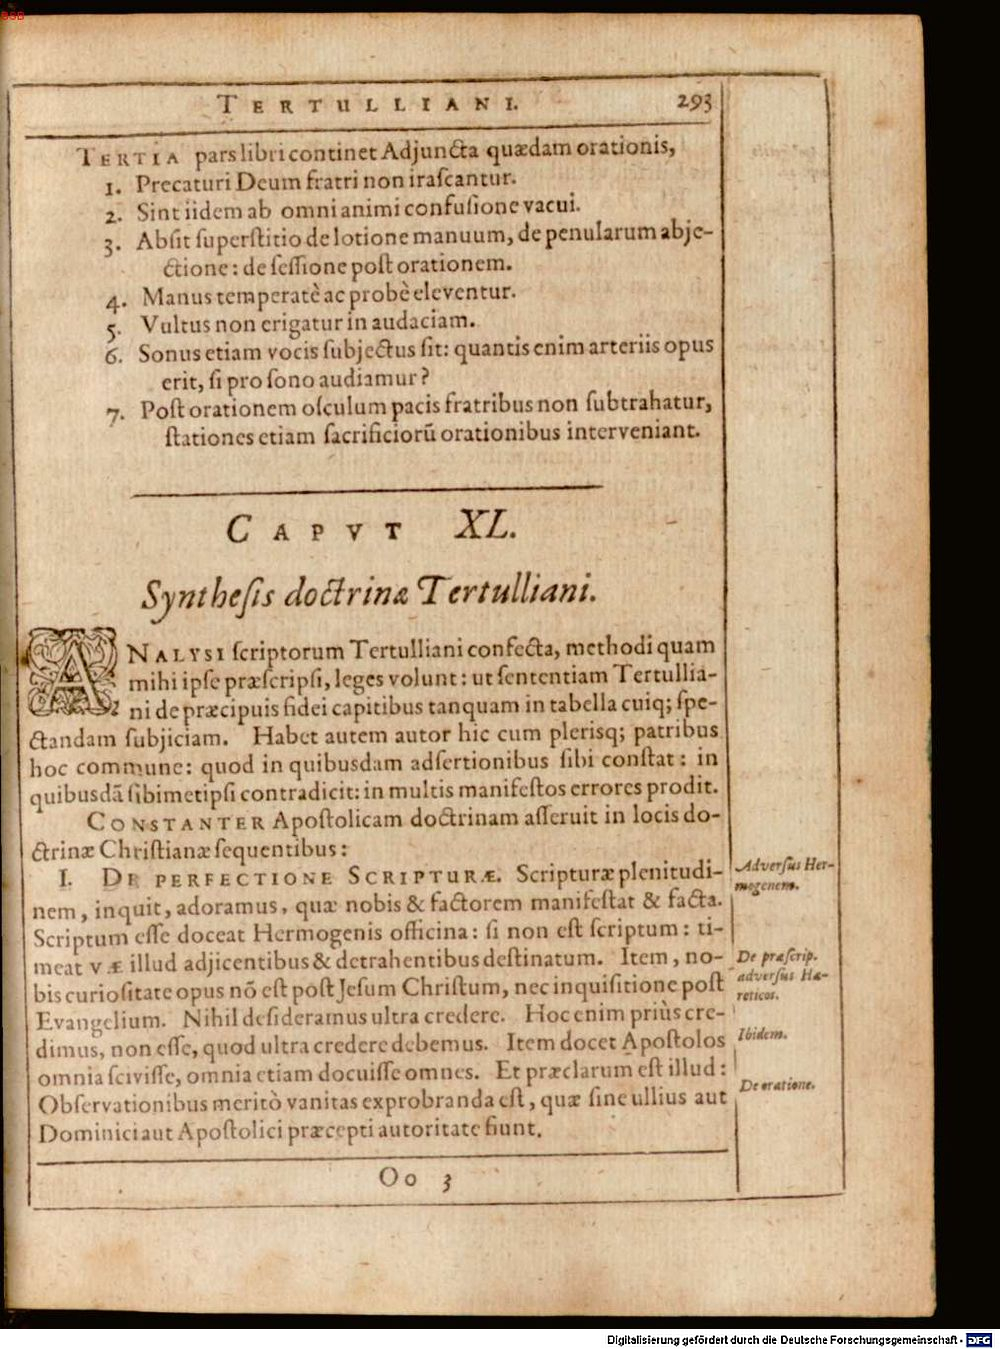 BSB
TERTULLIANI. 293
TERTIA pars libri continet Adjuncta quædam orationis,
1. Precaturi Deum fratri non iraſcantur.
2. Sint iidem ab omni animi confuſione vacui.
3. Abſit ſuperſtitio de lotione manuum, de penularum abje-
ctione: de ſeſſione poſt orationem.
4. Manus temperatè ac probè eleventur.
5. Vultus non erigatur in audaciam.
6. Sonus etiam vocis ſubjectus ſit: quantis enim arteriis opus
erit, ſi pro ſono audiamur?
7. Poſt orationem oſculum pacis fratribus non ſubtrahatur,
ſtationes etiam ſacrificiorũ orationibus interveniant.
CAPVT XL.
Syntheſis doctrinæ Tertulliani.
ANALYSI ſcriptorum Tertulliani confecta, methodi quam
mihi ipſe præſcripſi, leges volunt: ut ſententiam Tertullia-
ni de præcipuis fidei capitibus tanquam in tabella cuiq; ſpe-
ctandam ſubjiciam. Habet autem autor hic cum pleriſq; patribus
hoc commune: quod in quibusdam adſertionibus ſibi conſtat: in
quibusdã ſibimetipſi contradicit: in multis manifeſtos errores prodit.
CONSTANTER Apoſtolicam doctrinam aſſeruit in locis do-
ctrinæ Chriſtianæ ſequentibus:
I. DE PERFECTIONE SCRIPTURÆ. Scripturæ plenitudi-
nem, inquit, adoramus, quæ nobis & factorem manifeſtat & facta.
Scriptum eſſe doceat Hermogenis officina: ſi non eſt ſcriptum: ti-
meat VÆ illud adjicentibus & detrahentibus deſtinatum. Item, no-
bis curioſitate opus nõ eſt poſt Jeſum Chriſtum, nec inquiſitione poſt
Evangelium. Nihil deſideramus ultra credere. Hoc enim priùs cre-
dimus, non eſſe, quod ultra credere debemus. Item docet Apoſtolos
omnia ſciviſſe, omnia etiam docuiſſe omnes. Et præclarum eſt illud:
Obſervationibus meritò vanitas exprobranda eſt, quæ ſine ullius aut
Dominici aut Apoſtolici præcepti autoritate fiunt.
Adverſus Her-
mogenem.
De præſcrip.
adverſus Hæ-
reticos.
Ibidem.
De oratione.
Oo 3
Digitalisierung gefördert durch die Deutsche Forschungsgemeinschaft - DFG